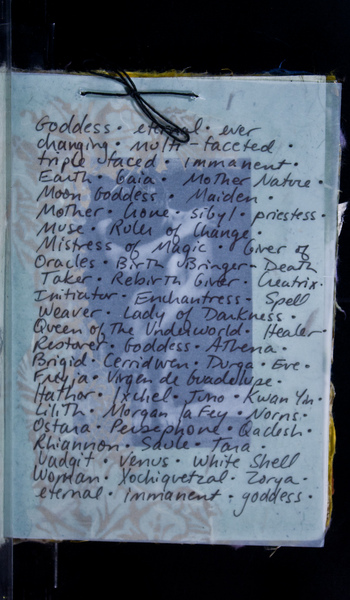 Goddess · eternal · ever
changing · multi-faceted ·
triple faced · immanent ·
Earth · Gaia · Mother Nature ·
Moon Goddess · Maiden ·
Mother · Crone · Sibyl · priestess ·
Muse · Ruler of Change ·
Mistress of Magic · Giver of
Oracles · Birth Bringer · Death
Taker · Rebirth Giver · Creatrix ·
Initiator · Enchantress · Spell
Weaver · Lady of Darkness ·
Queen of the Underworld · Healer ·
Restorer · Goddess · Athena ·
Brigid · Cerridwen · Durga · Eve ·
Freyja · Virgen de Guadelupe ·
Hathor · Ixchel · Juno · Kwan Yin ·
Lilith · Morgan la Fey · Norns ·
Ostara · Persephone · Qadesh ·
Rhiannon · Saule · Tara ·
Uadgit · Venus · White Shell
Woman · Xochiquetzal · Zorya ·
eternal · immanent · goddess ·